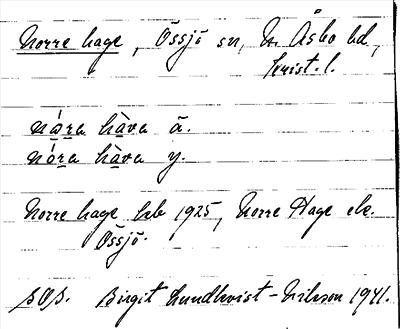 Norre hage, Össjö sn, N. Åsbo hd,
Krist. l.
nára hàva ä.
nóra hàva y.
Norre hage Jrb 1925, Norre Hage ek.
Össjö.
SOS. Birgit Lundkvist-Nilsson 1941.